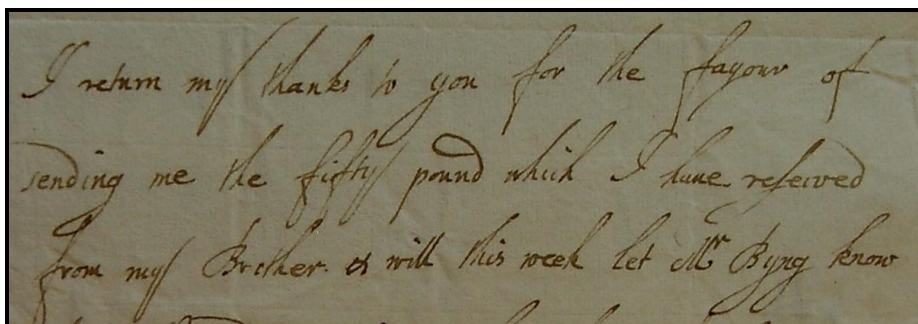 I return my thanks to you for the favour of
sending me the fifty pound which I have reseived
from my Brother & will this week let Mr Byng know